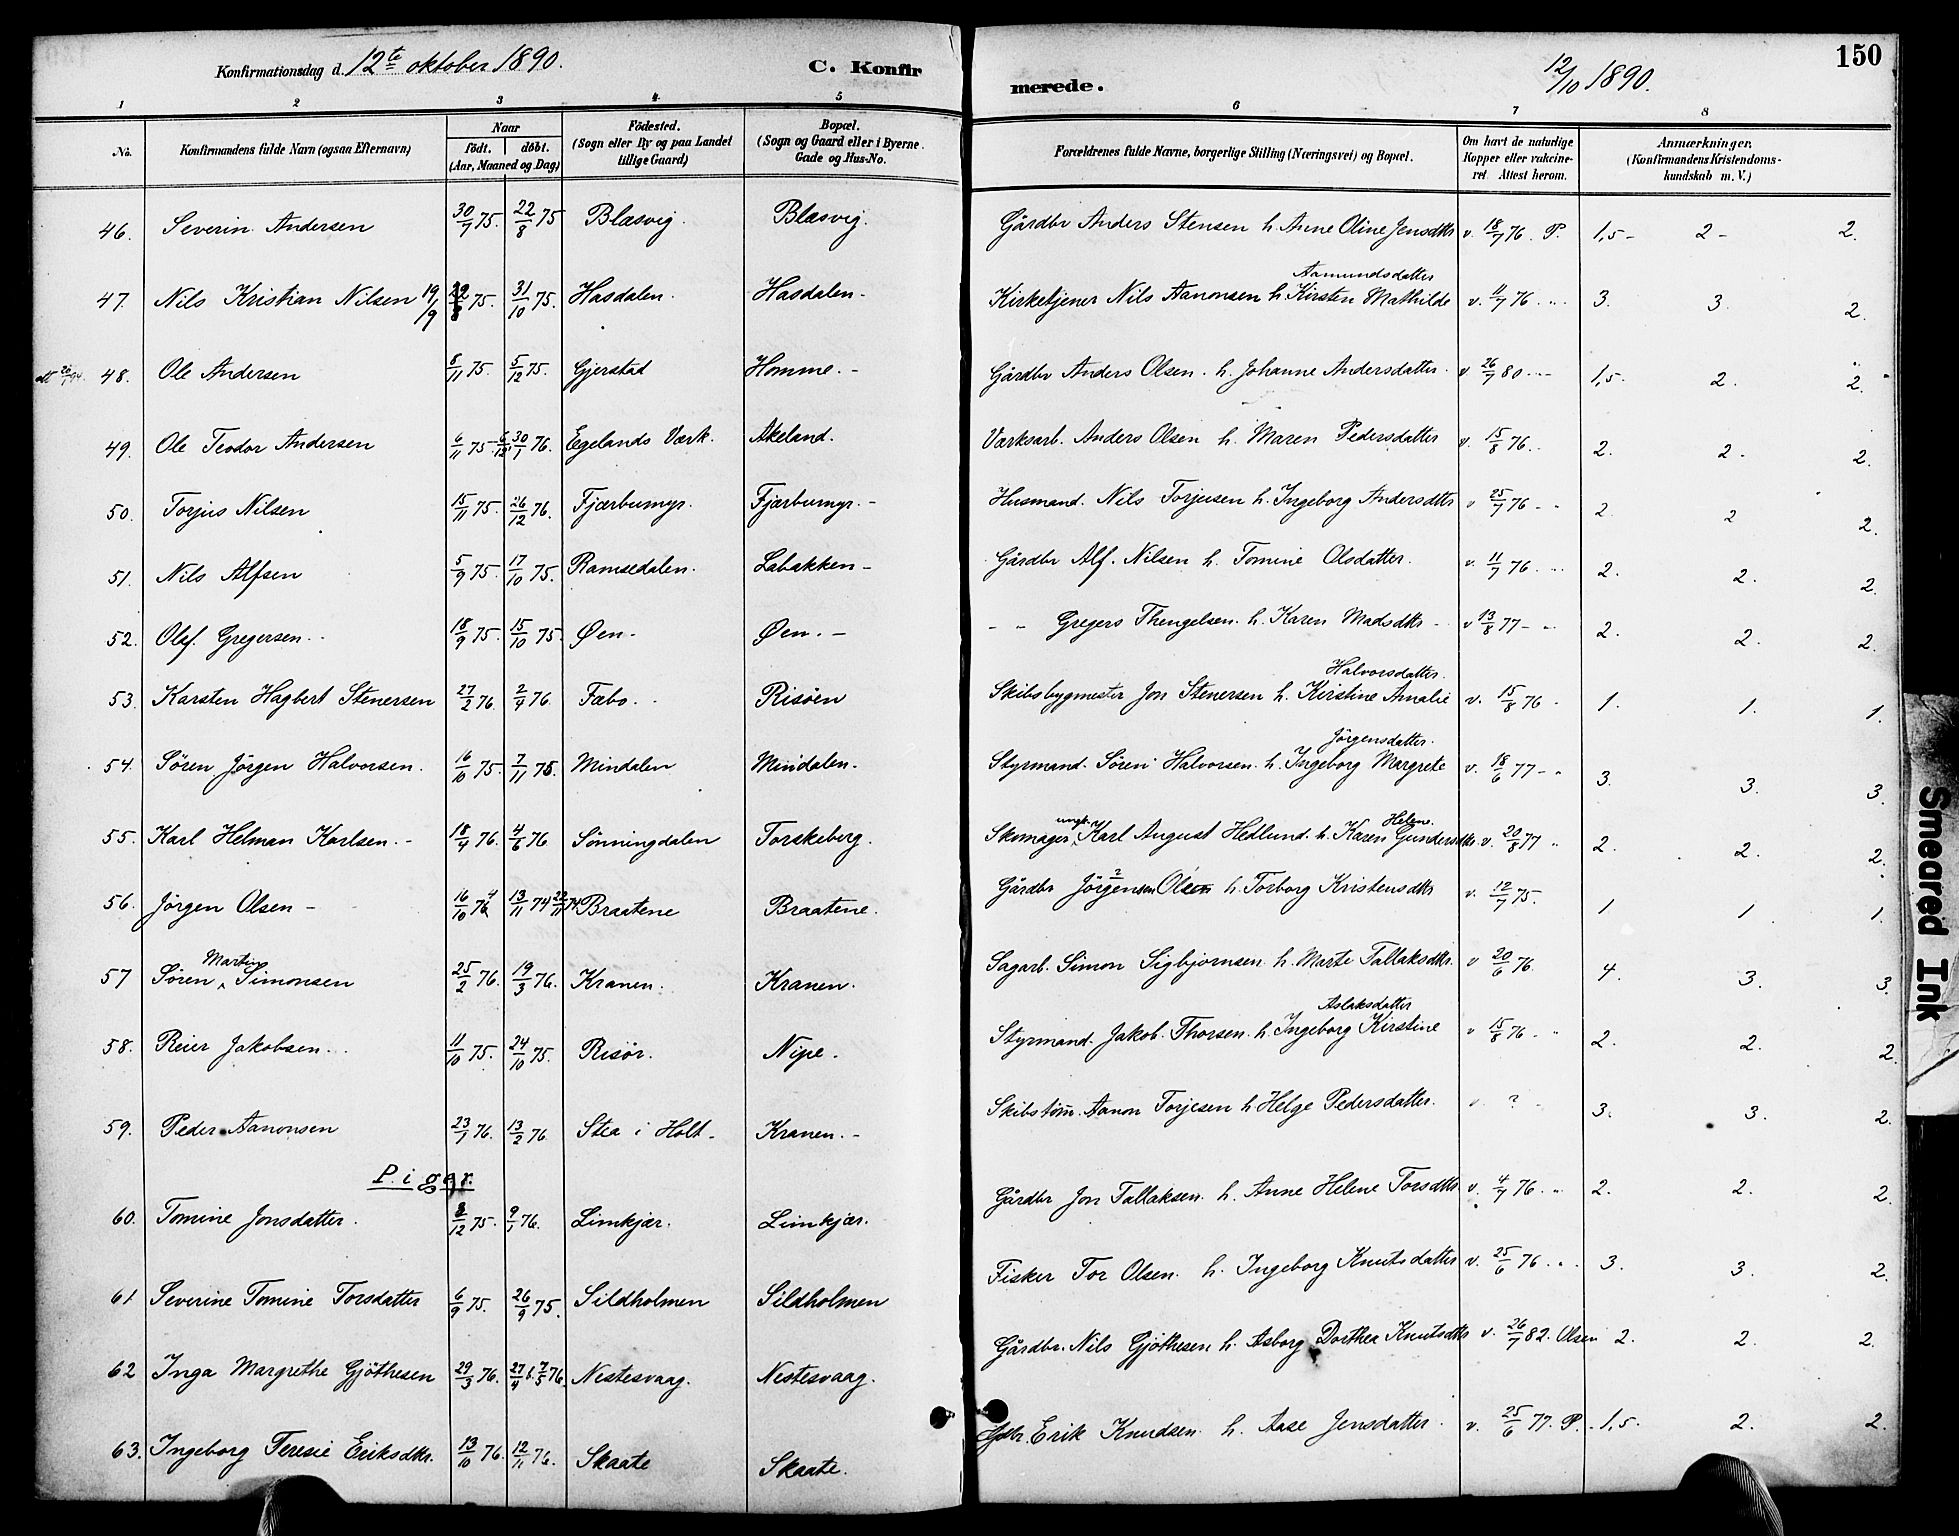 Konfirmationsdag d. 12te oktober 1890. C. Konfir
merede. 12/10 1890. 150
1 2 3 4 5 6 7 8
No. Konfirmandens fulde Navn (ogsaa Efternavn) Naar födt. döbt. (Aar, Maaned og Dag) Födested. (Sogn eller By og paa Landet tillige Gaard) Bopæl. (Sogn og Gaard eller i Byerne Gade og Hus-No. Forældrenes fulde Navne, borgerlige Stilling (Næringsvei) og Bopæl. Om havt de naturlige Kopper eller vakcineret. Attest herom. Anmærkninger. (Konfirmandens Kristendomskundskab m. V.)
46. Severin Andersen 30/7 75. 22/8 75 Blæsvig. Blæsvig. Gårdbr Anders Stensen h. Anne Oline Jensdtr v. 18/7 76. P. 1,5 - 2 - 2.
47. Nils Kristian Nilsen 19/9 75. 31/10 75. Hasdalen. Hasdalen. Kirketjener Nils Aanonsen h. Kirsten Mathilde Aamundsdatter v. 11/7 76 3. 3. 2.
48. Ole Andersen 8/11 75. 5/12 75. Gjerstad Homme. - Gårdbr Anders Olsen. h. Johanne Andersdatter. v 26/7 80 1,5. 2. 2.
49. Ole Teodor Andersen 6/11 75 - 6/12 30/1 76. Egelands Værk. Akeland. Værksarb. Anders Olsen h. Maren Pedersdatter v. 15/8 76. 2. 2. 2.
50. Torjus Nilsen 15/11 75. 26/12 76. Fjærbumyr. Fjærbumyr. - Husmand. Nils Torjusen h. Ingeborg Andersdtr v 25/7 76 2. 2 2.
51. Nils Alfsen 5/9 75. 17/10 75. Ramsedalen. Labakken - Gårdbr Alf. Nilsen h. Tomine Olsdatter. v. 11/7 76. 2. 2. 2.
52. Olaf. Gregersen. 18/9 75. 15/10 75. Øen. Øen. - - - Gregers Thengelsen. h. Karen Madsdtr - v 13/8 77 - 2. 2. 2.
53. Karsten Hagbert Stenersen 27/2 76. 2/4 76 Fæbo. Risöen Skibsbygmester Jon Stenersen h. Kirstine Amalie Halvorsdatter. v. 15/8 76 1. 1. 1.
54. Sören Jörgen Halvorsen. 16/10 75. 7/11 75. Mindalen Mindalen. Styrmand. Sören Halvorsen. h. Ingeborg Margrete Jörgensdatter. v. 18/6 77 - 3. 3. 3.
55. Karl Helman Karlsen. - 18/4 76. 4/6 76 Sönningdalen Torskeberg. Skomager, ungk. Karl August Hedlund. h. Karen Helene. Gundersdtr. v. 20/8 77 2. 2. 2.
56. Jörgen Olsen - 16/10 74 13/11 74 22/11 74 Braatene Braatene. Gårdbr Jörgensen? Olsen h. Torborg Kristensdtr v. 12/7 75. 1 1 1.
57 Sören Martin Simonsen 25/2 76. 19/3 76. Kranen. Kranen. Sagarb. Simon Sigbjornsen. h. Marte Tallaksdtr. v 20/6 76. 4. 3. 3.
58. Reier Jakobsen. 11/10 75. 24/10 75. Risör. Nipe. Styrmand. Jakob. Thorsen. h. Ingeborg Kirstine Aslaksdatter v 15/8 76 2. 2. 2.
59. Peder Aanonsen 23/1 76. 13/2 76 Stea i Holt. Kranen. - Skibstöm. Aanon Torjesen h Helge Pedersdatter. v ? 3. 3. 2.
Piger.
60. Tomine Jonsdatter. 8/12 75. 9/1 76. Limkjær. Limkjær. Gårdbr Jon Tallaksen. h. Anne Helene Torsdtr v. 4/7 76. 2. 2. 2.
61 Severine Tomine Torsdatter 6/9 75. 26/9 75. Sildholmen Sildholmen Fisker Tor Olsen. h. Ingeborg Knutsdatter v. 25/6 76. 3. 3. 2.
62 Inga Margrethe Gjöthesen 29/3 76. 27/4 7/5 76. Nestesvaag. Nestesvaag. Gårdbr. Nils Gjöthesen h. Asborg Dorthea Knutsdtr v. 26/7 82. Olsen 2. 2. 2.
63. Ingeborg Teresie Eriksdtr. 13/10 76. 12/11 76. Skaate Skaate. Gdbr. Erik Knudsen h. Aase Jensdatter. v. 25/6 77. P. 1,5. 2. 2.
Smeared Ink